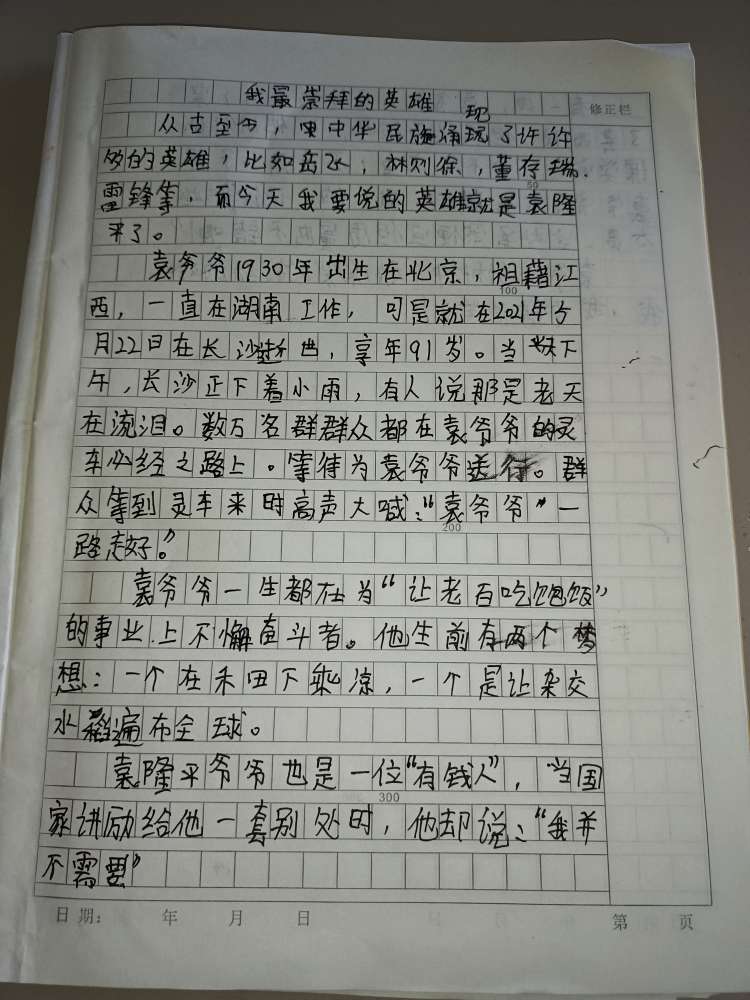 我最崇拜的英雄
修正栏
现
从古至今，中华民族涌现了许许
多的英雄，比如岳飞，林则徐，董存瑞、
50
雷锋等，而今天我要说的英雄就是袁隆
来了。
袁爷爷1930年出生在北京，祖籍江
100
西，一直在湖南工作，可是就在2021年今
月22日在长沙逝世，享年91岁。当天下
午，长沙正下着小雨，有人说那是老天
在流泪。数万名群群众都在袁爷爷的灵
车必经之路上。等待为袁爷爷送行。群
众等到灵车来时高声大喊：“袁爷爷”一
200
路走好。”
袁爷爷一生都在为“让老百吃饱饭”
的事业上不懈奋斗者。他生前有两个梦
想：一个在禾田下乘凉，一个是让杂交
水稻遍布全球。
袁隆平爷爷也是一位“有钱人”，当国
300
家讲励给他一套别处时，他却说：“我并
不需要”
日期： 年 月 日 第 页